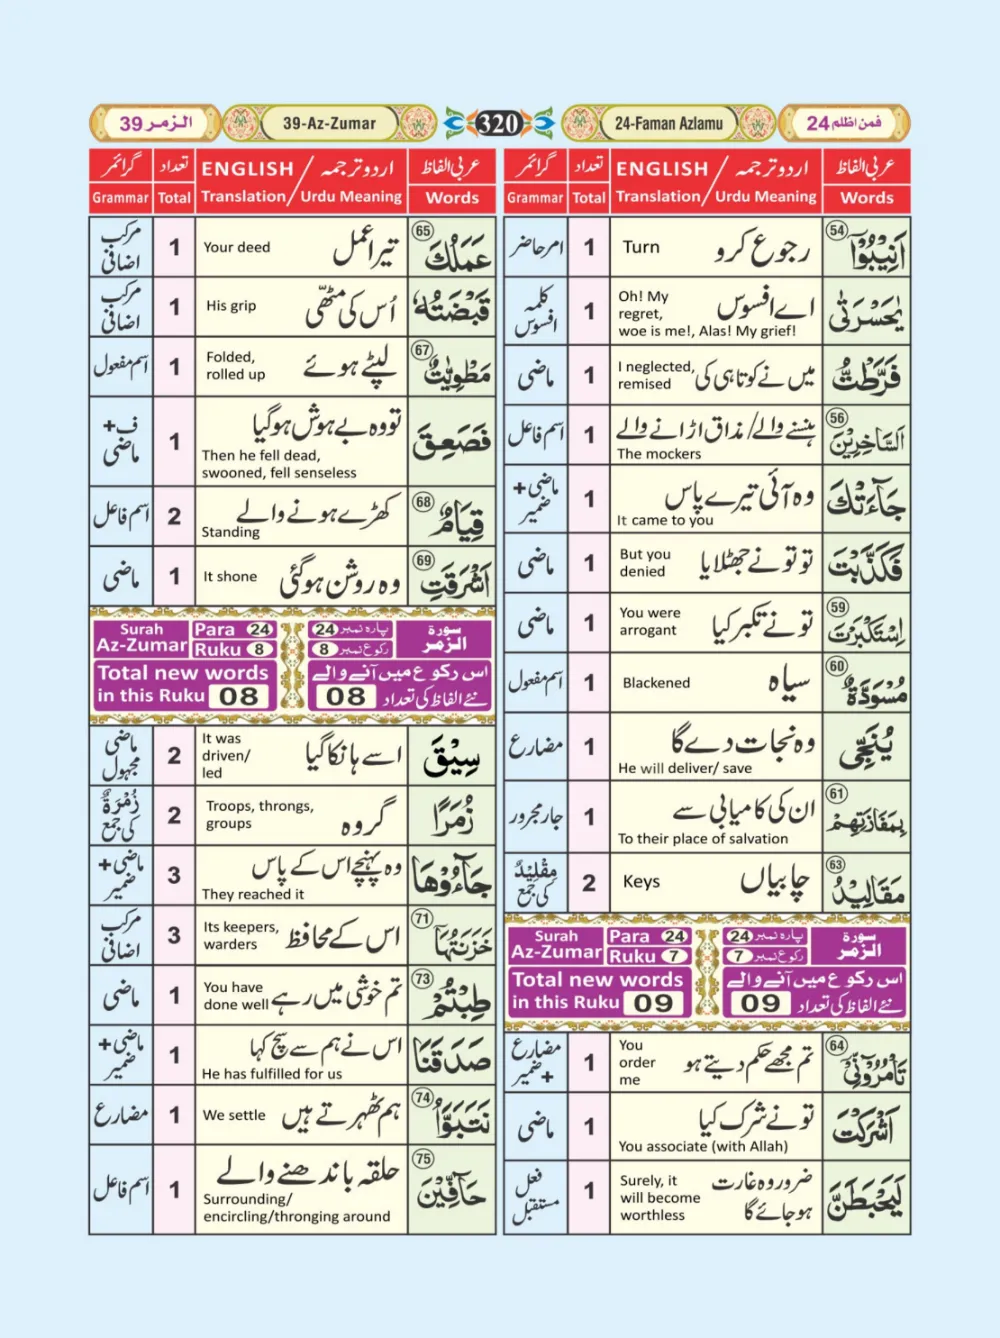 الزمر 39
39-Az-Zumar
320
24-Faman Azlamu
فمن اظلم 24
عربی الفاظ
اردو ترجمہ / ENGLISH
تعداد
گرائمر
Words
Translation / Urdu Meaning
Total
Grammar
54 اَنِيْبُوْٓا
رجوع کرو Turn
1
امر حاضر
يٰحَسْرَتٰى
اے افسوس Oh! My regret, woe is me!, Alas! My grief!
1
کلمہ افسوس
فَرَّطْتُّ
میں نے کوتاہی کی I neglected, remised
1
ماضی
56 السَّاخِرِيْنَ
ہنسنے والے/ مذاق اڑانے والے
The mockers
1
اسم فاعل
جَآءَتْكَ
وہ آئی تیرے پاس
It came to you
1
ماضی + ضمیر
فَكَذَّبْتَ
تو تو نے جھٹلایا But you denied
1
ماضی
59 اِسْتَكْبَرْتَ
تو نے تکبر کیا You were arrogant
1
ماضی
60 مُّسْوَدَّةٌ
سیاہ Blackened
1
اسم مفعول
يُنَجِّى
وہ نجات دے گا
He will deliver/ save
1
مضارع
61 بِمَفَازَتِهِمْ
ان کی کامیابی سے
To their place of salvation
1
جار مجرور
63 مَقَالِيْدُ
چابیاں Keys
2
مِقْلِيْدٌ کی جمع
Surah Az-Zumar
Para 24
Ruku 7
پارہ نمبر 24
رکوع نمبر 7
سورۃ الزمر
Total new words in this Ruku 09
اس رکوع میں آنے والے نئے الفاظ کی تعداد 09
64 تَاْمُرُوْٓنِّىْٓ
تم مجھے حکم دیتے ہو You order me
1
مضارع + ضمیر
اَشْرَكْتَ
تو نے شرک کیا
You associate (with Allah)
1
ماضی
لَيَحْبَطَنَّ
ضرور وہ غارت ہو جائے گا Surely, it will become worthless
1
فعل مستقبل
عربی الفاظ
اردو ترجمہ / ENGLISH
تعداد
گرائمر
Words
Translation / Urdu Meaning
Total
Grammar
65 عَمَلُكَ
تیرا عمل Your deed
1
مرکب اضافی
قَبْضَتُهٗ
اُس کی مٹھّی His grip
1
مرکب اضافی
67 مَطْوِيّٰتٌۢ
لپٹے ہوئے Folded, rolled up
1
اسم مفعول
فَصَعِقَ
تو وہ بے ہوش ہوگیا
Then he fell dead, swooned, fell senseless
1
ف + ماضی
68 قِيَامٌ
کھڑے ہونے والے
Standing
2
اسم فاعل
69 اَشْرَقَتِ
وہ روشن ہوگئی It shone
1
ماضی
Surah Az-Zumar
Para 24
Ruku 8
پارہ نمبر 24
رکوع نمبر 8
سورۃ الزمر
Total new words in this Ruku 08
اس رکوع میں آنے والے نئے الفاظ کی تعداد 08
سِيْقَ
اسے ہانکا گیا It was driven/ led
2
ماضی مجہول
زُمَرًا
گروہ Troops, throngs, groups
2
زُمْرَةٌ کی جمع
جَآءُوْهَا
وہ پہنچے اس کے پاس
They reached it
3
ماضی + ضمیر
71 خَزَنَتُهَا
اس کے محافظ Its keepers, warders
3
مرکب اضافی
73 طِبْتُمْ
تم خوشی میں رہے You have done well
1
ماضی
صَدَقَنَا
اس نے ہم سے سچ کہا
He has fulfilled for us
1
ماضی + ضمیر
74 نَتَبَوَّاُ
ہم ٹھہرتے ہیں We settle
1
مضارع
75 حَآفِّيْنَ
حلقہ باندھنے والے
Surrounding/ encircling/thronging around
1
اسم فاعل